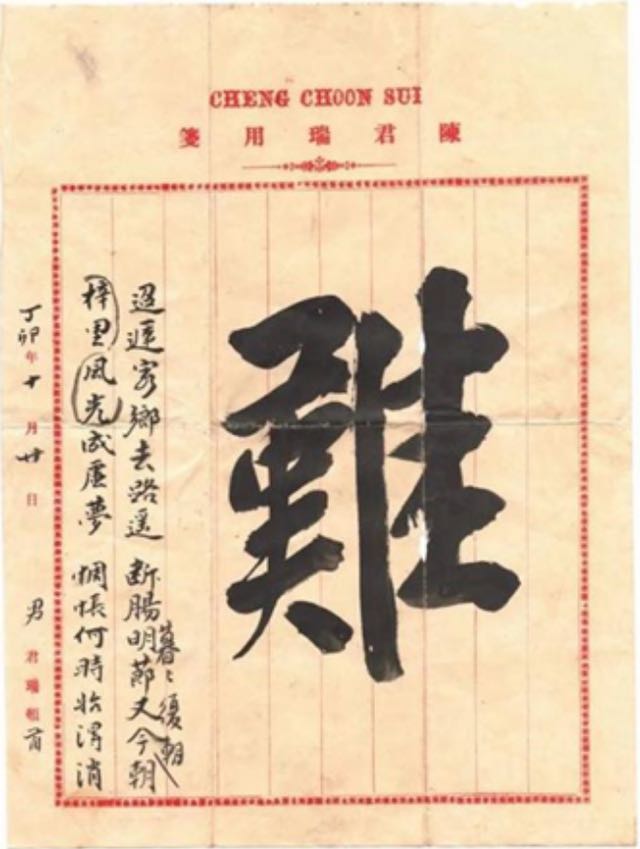 CHENG CHOON SUI
陳君瑞用箋
難
暮〻復朝
迢遞客鄉去路遥 断腸明節又今朝
梓里風光成虛夢 惆悵何時始淂消
丁卯年十月廿日 男君瑞頓首